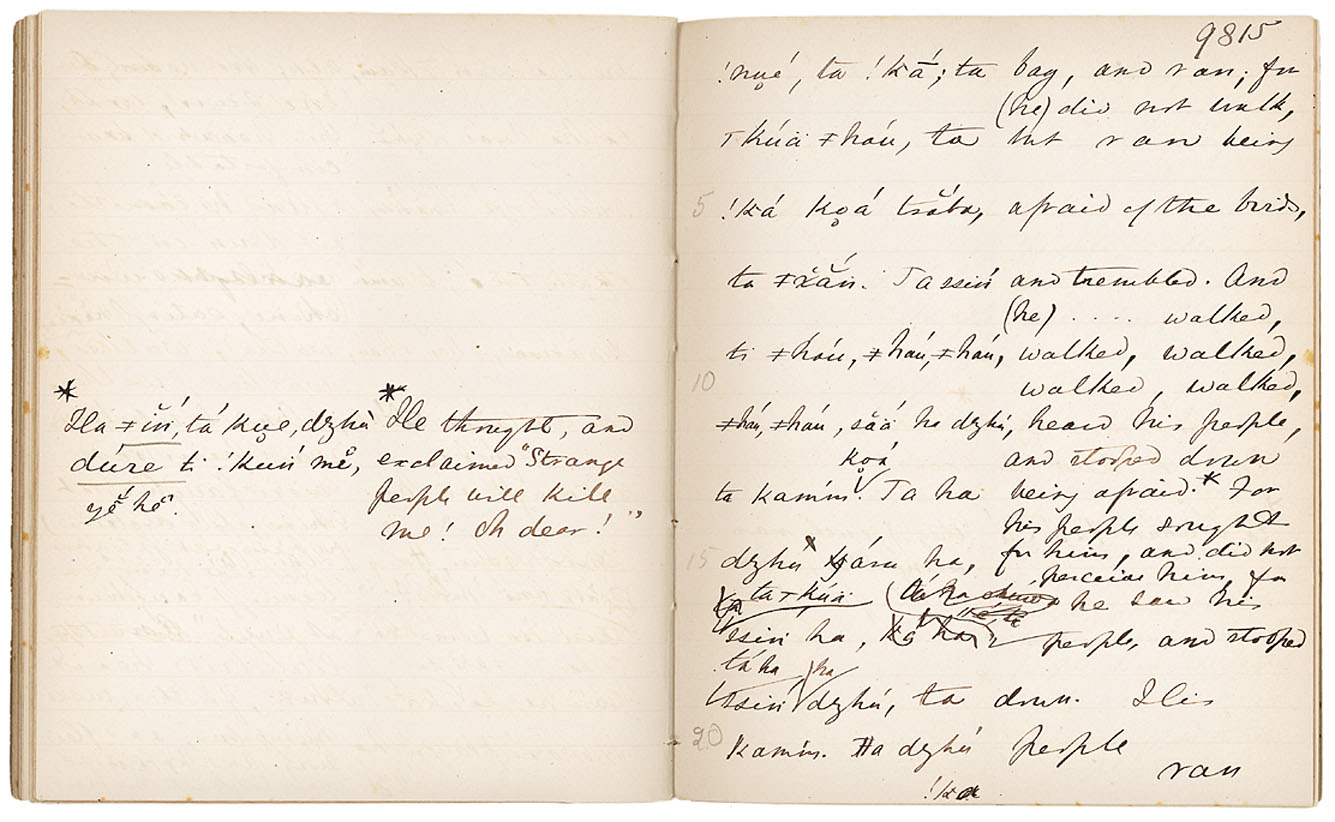 Ha ǂǐń, tá ku̯e, dzhù
dúre ti !kuń mȅ,
yě hě.
He thought, and
exclaimed "Strange
people will kill
me! Oh dear!"
9815
!nu̯é, ta !ká; ta bag, and ran; for
(he) did not walk,
ǂhóu, ta but ran being
5 !ká ko̯á tsǎba, afraid of the birds,
ta ǂxǎń. Ta ssiń and trembled. And
(he) .... walked,
ti ǂhóu, ǂháu, ǂháu, walked, walked,
10 walked, walked,
ǂháu, ǂháu, sǎá ha dzhú, heard his people,
ko̯á and stooped down
ta kamm. Ta ha being afraid.* For
his people sought
15 dzhú ha, for him, and did not
perceive him, for
he saw his
ssiń ha, people, and stooped
tá ha ha
ssiń dzhú, ta down. His
20 kamm. Ha dzhú people
ran
!ka